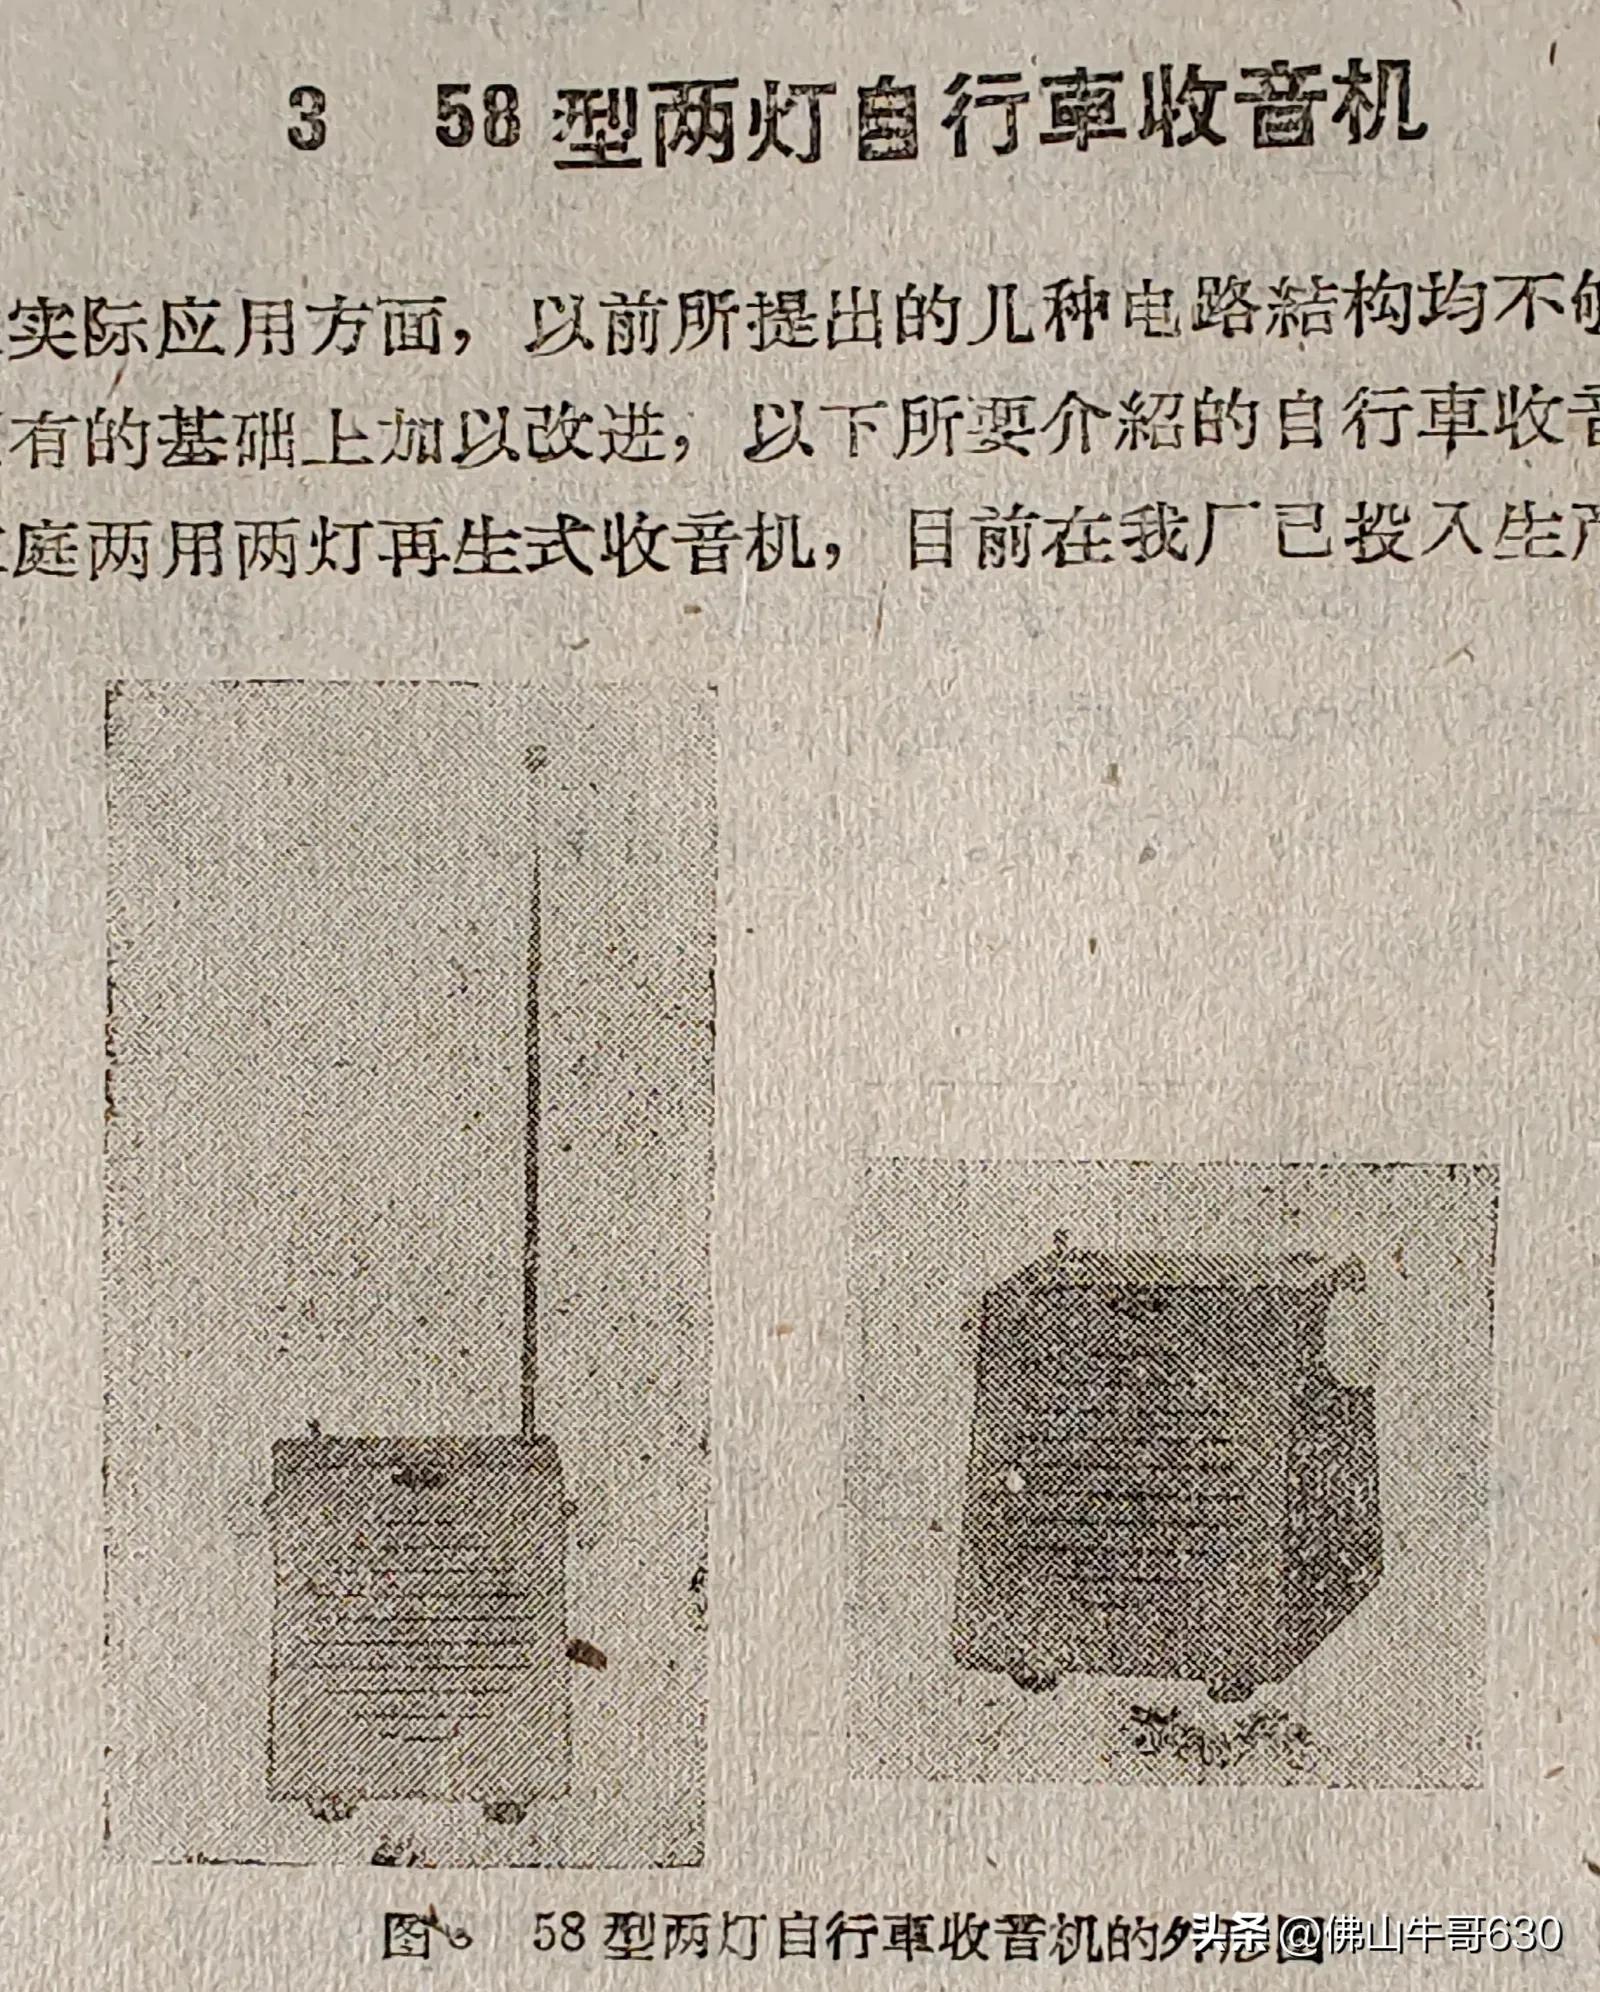 3 58型两灯自行車收音机
实际应用方面，以前所提出的几种电路結构均不
有的基础上加以改进，以下所要介紹的自行車收音
庭两用两灯再生式收音机，目前在我厂已投入生产
图 58型两灯自行車收音机的外形图
头条 @佛山牛哥630